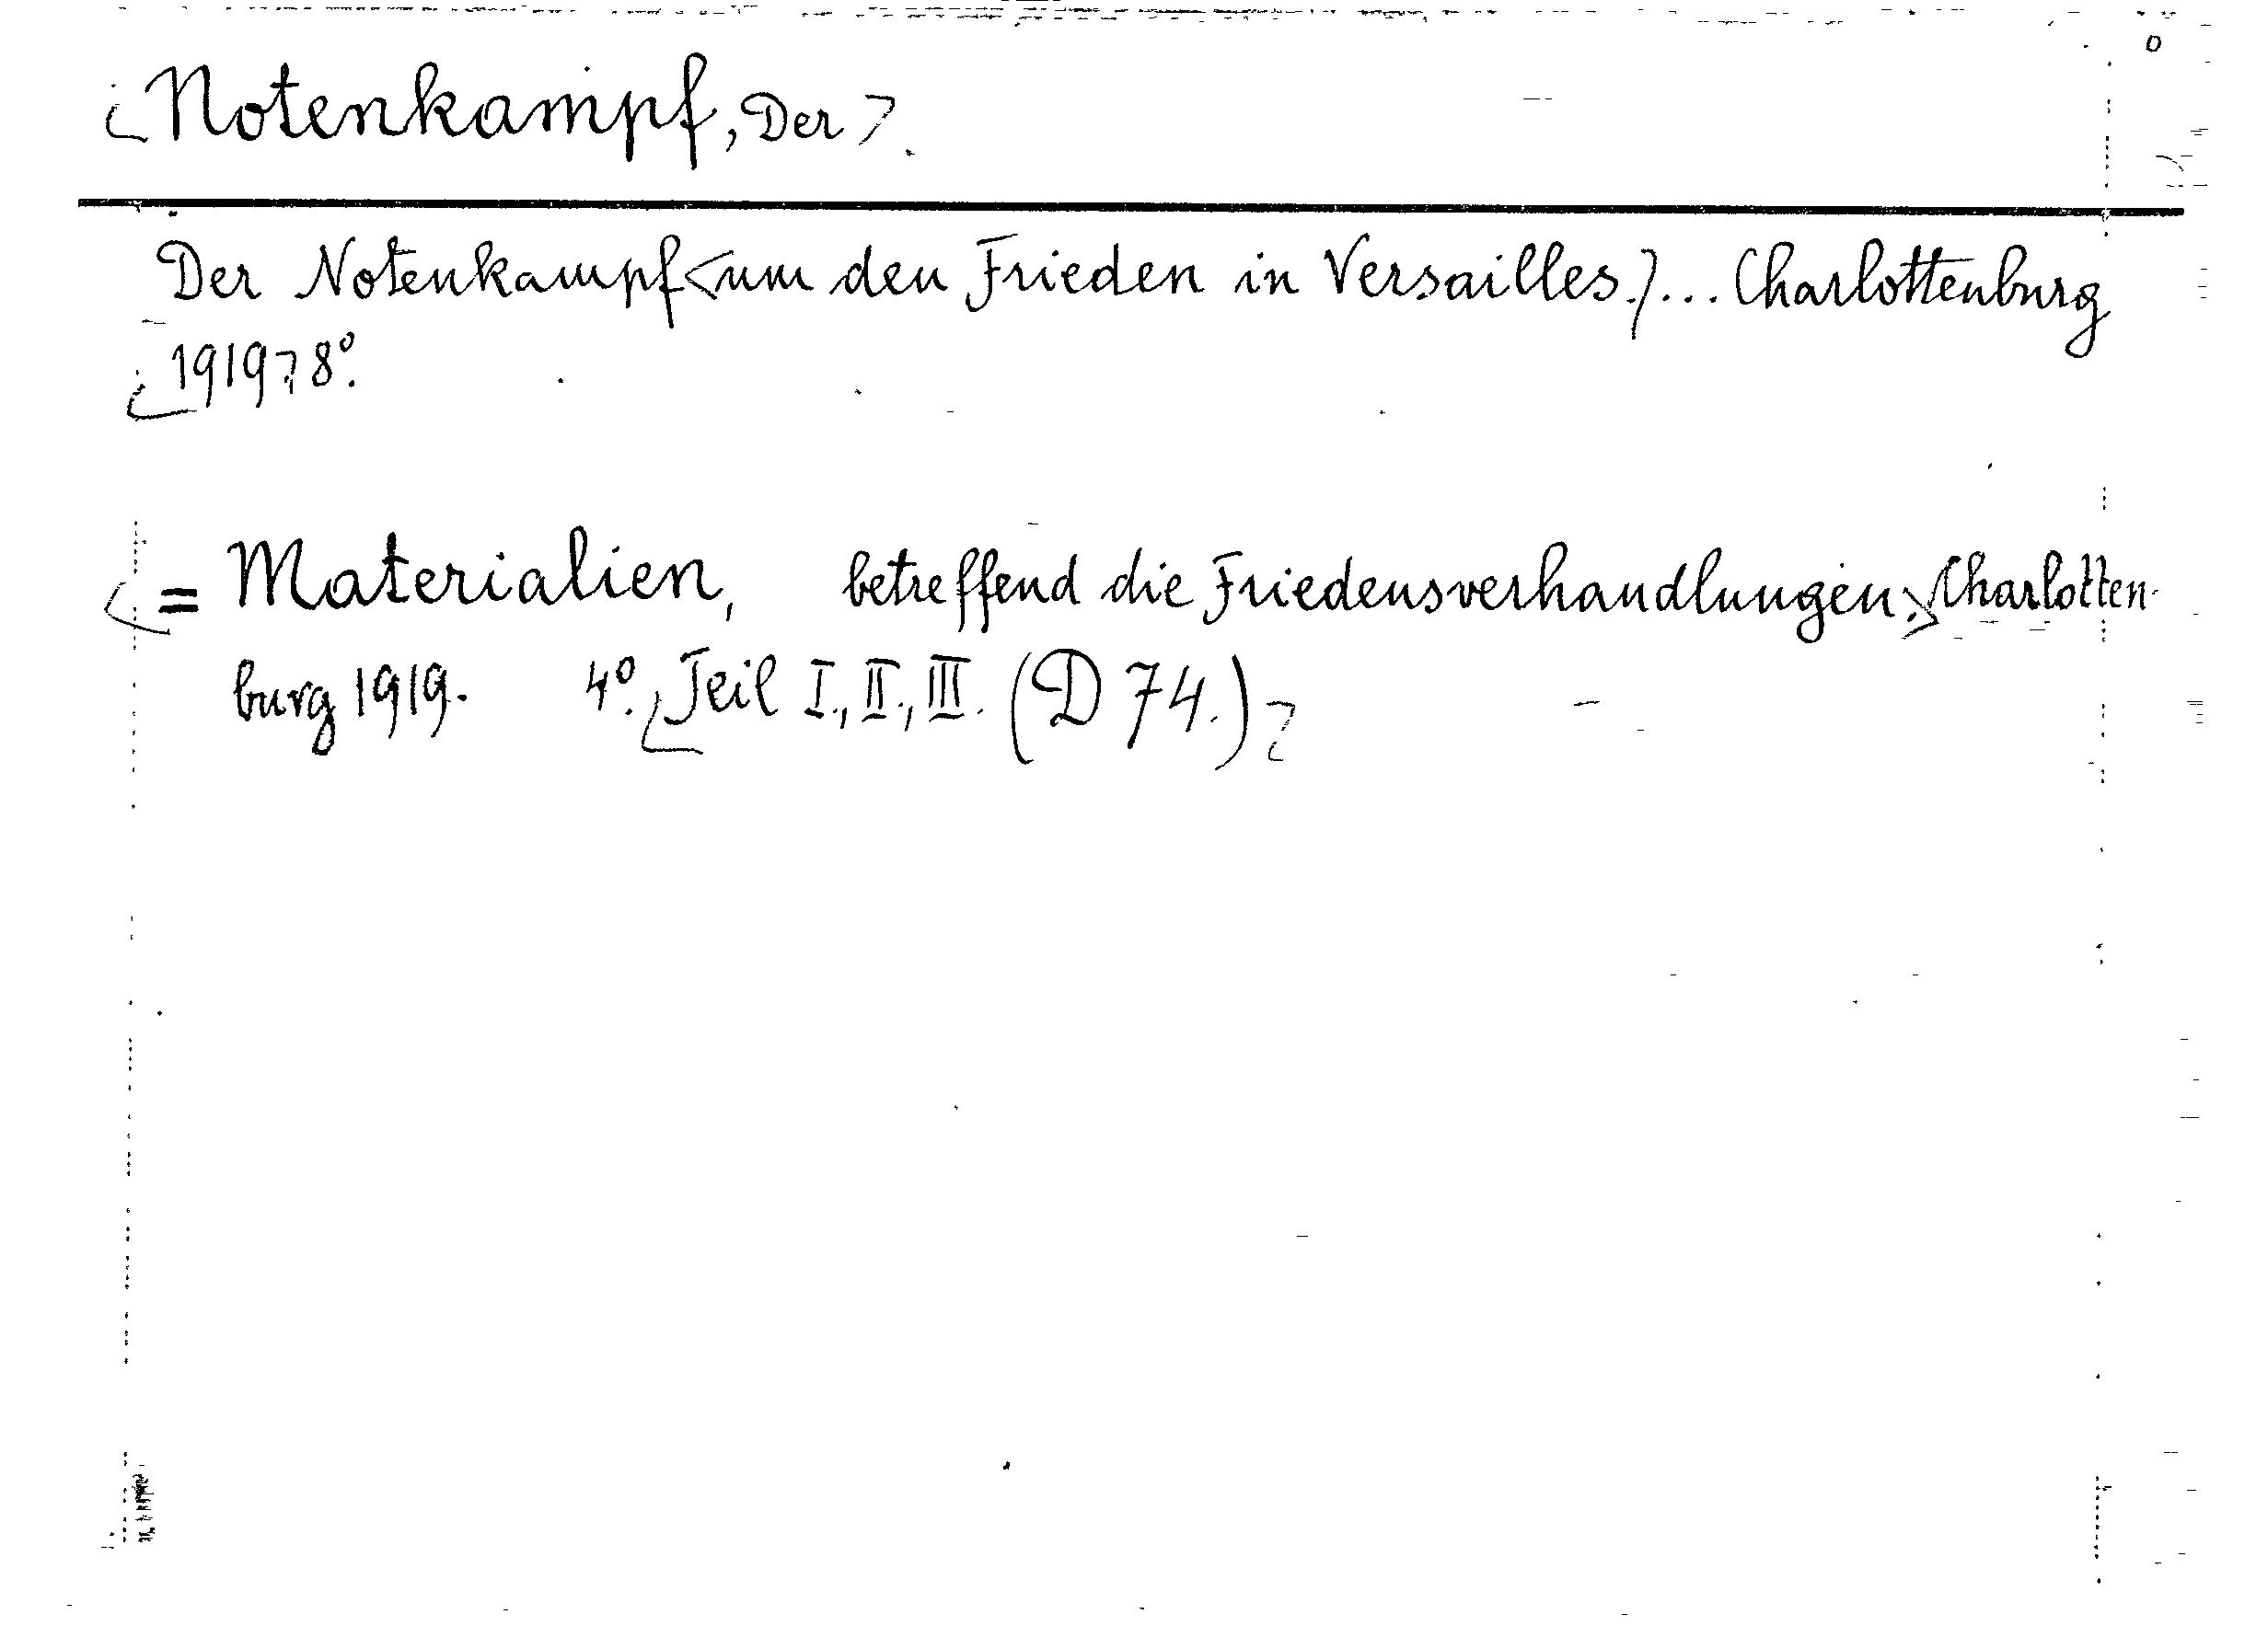 <Notenkampf, Der>
Der Notenkampf <um den Frieden in Versailles.> ... Charlottenburg
<1919> 8°.
<= Materialien, betreffend die Friedensverhandlungen.> Charlotten-
burg 1919. 4°. <Teil I., II., III. (D 74.)>